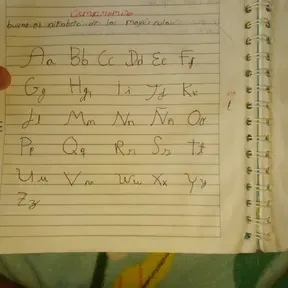 Compromiso
alfabeto de las mayúsculas
Aa Bb Cc Dd Ee Ff
Gg Hh Ii Jj Kk
Ll Mm Nn Ññ Oo
Pp Qq Rr Ss Tt
Uu Vv Ww Xx Yy
Zz